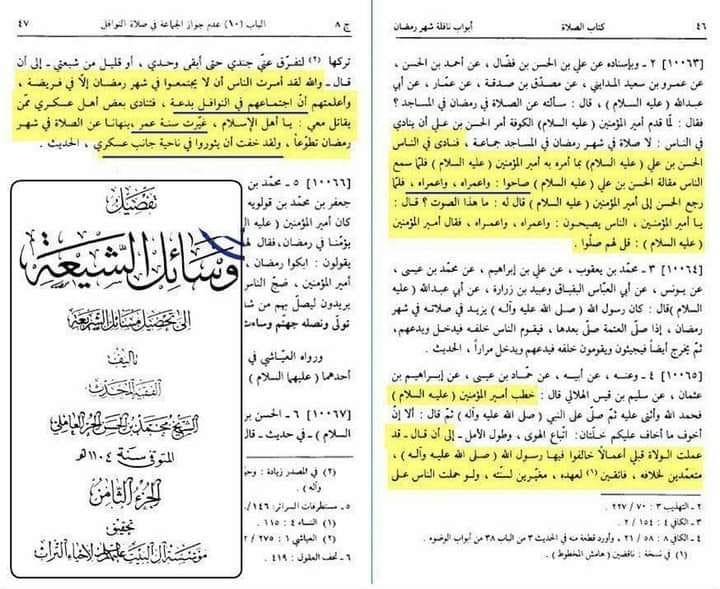 ٤٦ كتاب الصلاة أبواب نافلة شهر رمضان
[١٠٠٦٣] ٢ ـ وبإسناده عن علي بن الحسن بن فضّال ، عن أحمد بن الحسن ،
عن عمرو بن سعيد المدايني ، عن مصدّق بن صدقة ، عن عمّار ، عن أبي
عبدالله ( عليه السلام ) ، قال : سألته عن الصلاة في رمضان في المساجد ؟
فقال : لمّا قدم أمير المؤمنين ( عليه السلام) الكوفة أمر الحسن بن علي أن ينادي
في الناس : لا صلاة في شهر رمضان في المساجد جماعة ، فنادى في الناس
الحسن بن علي (عليه السلام) بما أمره به أمير المؤمنين (عليه السلام) فلمّا سمع
الناس مقالة الحسن بن علي ( عليه السلام ) صاحوا : واعمراه ، واعمراه ، فلمّا
رجع الحسن إلى أمير المؤمنين (عليه السلام ) قال له : ما هذا الصوت ؟ قال :
يا أمير المؤمنين ، الناس يصيحون : واعمراه ، واعمراه ، فقال أمير المؤمنين
( عليه السلام ) : قل لهم صلّوا .
[١٠٠٦٤] ٣ ـ محمّد بن يعقوب ، عن علي بن إبراهيم ، عن محمّد بن عيسى ،
عن يونس ، عن أبي العبّاس البقباق وعبيد بن زرارة ، عن أبي عبدالله ( عليه
السلام )قال : كان رسول الله ( صلى الله عليه وآله ) يزيد في صلاته في شهر
رمضان ، إذا صلّى العتمة صلّى بعدها ، فيقوم الناس خلفه فيدخل ويدعهم ،
ثمّ يخرج أيضاً فيجيئون ويقومون خلفه فيدعهم ويدخل مراراً ، الحديث .
[١٠٠٦٥] ٤ ـ وعنه ، عن أبيه ، عن حمّاد بن عيسى ، عن إبراهيم بن
عثمان ، عن سليم بن قيس الهلالي قال : خطب أمير المؤمنين ( عليه السلام )
فحمد الله وأثنى عليه ثمّ صلّى على النبي ( صلى الله عليه وآله ) ثمّ قال : ألا إنّ
أخوف ما أخاف عليكم خلّتان : اتّباع الهوى ، وطول الأمل ـ إلى أن قال ـ قد
عملت الولاة قبلي أعمالاً خالفوا فيها رسول الله ( صلى الله عليه وآله ) ،
متعمّدين لخلافه ، فاتقين (١) لعهده ، مغيّرين لسنّته ، ولو حملت الناس على
٢ ـ التهذيب ٣ : ٧٠ / ٢٢٧ .
٣ ـ الكافي ٤ : ١٥٤ / ٢ .
٤ ـ الكافي ٨ : ٥٨ / ٢١ ، وأورد قطعة منه في الحديث ٣ من الباب ٣٨ من أبواب الوضوء .
(١) في نسخة : ناقضين ( هامش المخطوط ) .
ج ٨ الباب (١٠) عدم جواز الجماعة في صلاة النوافل ٤٧
تركها (٢) لتفرّق عنّي جندي حتى أبقى وحدي ، أو قليل من شيعتي ـ إلى أن
قال ـ والله لقد أمرت الناس أن لا يجتمعوا في شهر رمضان إلاّ في فريضة ،
وأعلمتهم أنّ اجتماعهم في النوافل بدعة ، فتنادى بعض أهل عسكري ممّن
يقاتل معي : يا أهل الإِسلام ، غيّرت سنة عمر ، ينهانا عن الصلاة في شهر
رمضان تطوّعاً ، ولقد خفت أن يثوروا في ناحية جانب عسكري ، الحديث .
[١٠٠٦٦] ٥ ـ محمّد بن
جعفر بن محمّد بن قولويه
كان أمير المؤمنين ( عليه ال
يؤمّنا في رمضان ، فقال لهم
يقولون : ابكوا رمضان ،
المؤمنين ، ضجّ الناس
يريدون ليصلّ بهم من شا
تولى ونصله جهنّم وساءت
ورواه العياشي في
أحدهما ( عليهما السلام )
[١٠٠٦٧] ٦ ـ الحسن بن
السلام ) ـ في حديث ـ قال
(٢) في المصدر زيادة : وحو
وآله ) .
٥ ـ مستطرفات السرائر: ١٤٦/
(١) النساء ٤ : ١١٥ .
(٢) العياشي ١ : ٢٧٥ /
٦ ـ تحف العقول : ٤١٩ .
تفصيل
وسائل الشيعة
إلى تحصيل مسائل الشريعة
تأليف
الفقيه المحدث
الشيخ محمد بن الحسن الحر العاملي
المتوفى سنة ١١٠٤ هـ
الجزء الثامن
تحقيق
مؤسسة آل البيت عليهم السلام لإحياء التراث